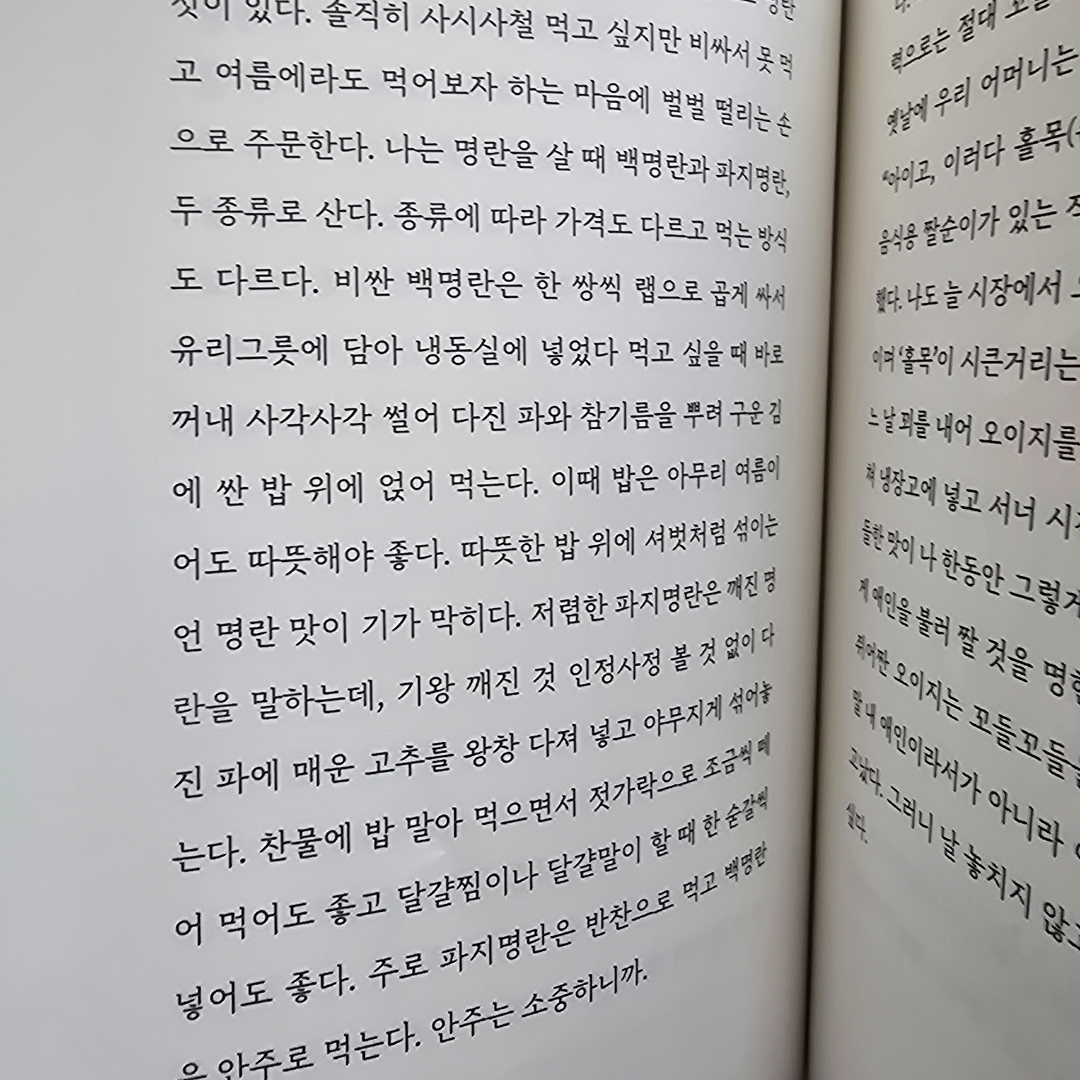 것이 있다. 솔직히 사시사철 먹고 싶지만 비싸서 못 먹
고 여름에라도 먹어보자 하는 마음에 벌벌 떨리는 손
으로 주문한다. 나는 명란을 살 때 백명란과 파지명란,
두 종류로 산다. 종류에 따라 가격도 다르고 먹는 방식
도 다르다. 비싼 백명란은 한 쌍씩 랩으로 곱게 싸서
유리그릇에 담아 냉동실에 넣었다 먹고 싶을 때 바로
꺼내 사각사각 썰어 다진 파와 참기름을 뿌려 구운 김
에 싼 밥 위에 얹어 먹는다. 이때 밥은 아무리 여름이
어도 따뜻해야 좋다. 따뜻한 밥 위에 셔벗처럼 섞이는
언 명란 맛이 기가 막히다. 저렴한 파지명란은 깨진 명
란을 말하는데, 기왕 깨진 것 인정사정 볼 것 없이 다
진 파에 매운 고추를 왕창 다져 넣고 야무지게 섞어놓
는다. 찬물에 밥 말아 먹으면서 젓가락으로 조금씩 떼
어 먹어도 좋고 달걀찜이나 달걀말이 할 때 한 숟갈씩
넣어도 좋다. 주로 파지명란은 반찬으로 먹고 백명란
은 안주로 먹는다. 안주는 소중하니까.
력으로는 절대
옛날에 우리 어머니는
“아이고, 이러다 홀목(
음식용 짤순이가 있는
했다. 나도 늘 시장에서
이며 ‘홀목’이 시큰거리는
느 날 꾀를 내어 오이지를
쳐 냉장고에 넣고 서너 시
들한 맛이 나 한동안 그렇게
게 애인을 불러 짤 것을 명
쥐어짠 오이지는 꼬들꼬들
말 내 애인이라서가 아니라
고났다. 그러니 날 놓치지 않
싶다.